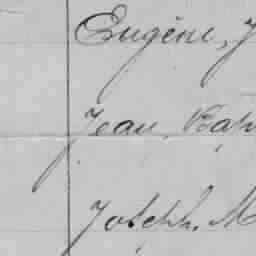 Eugène, J
Jean, Bap
Joseph, M